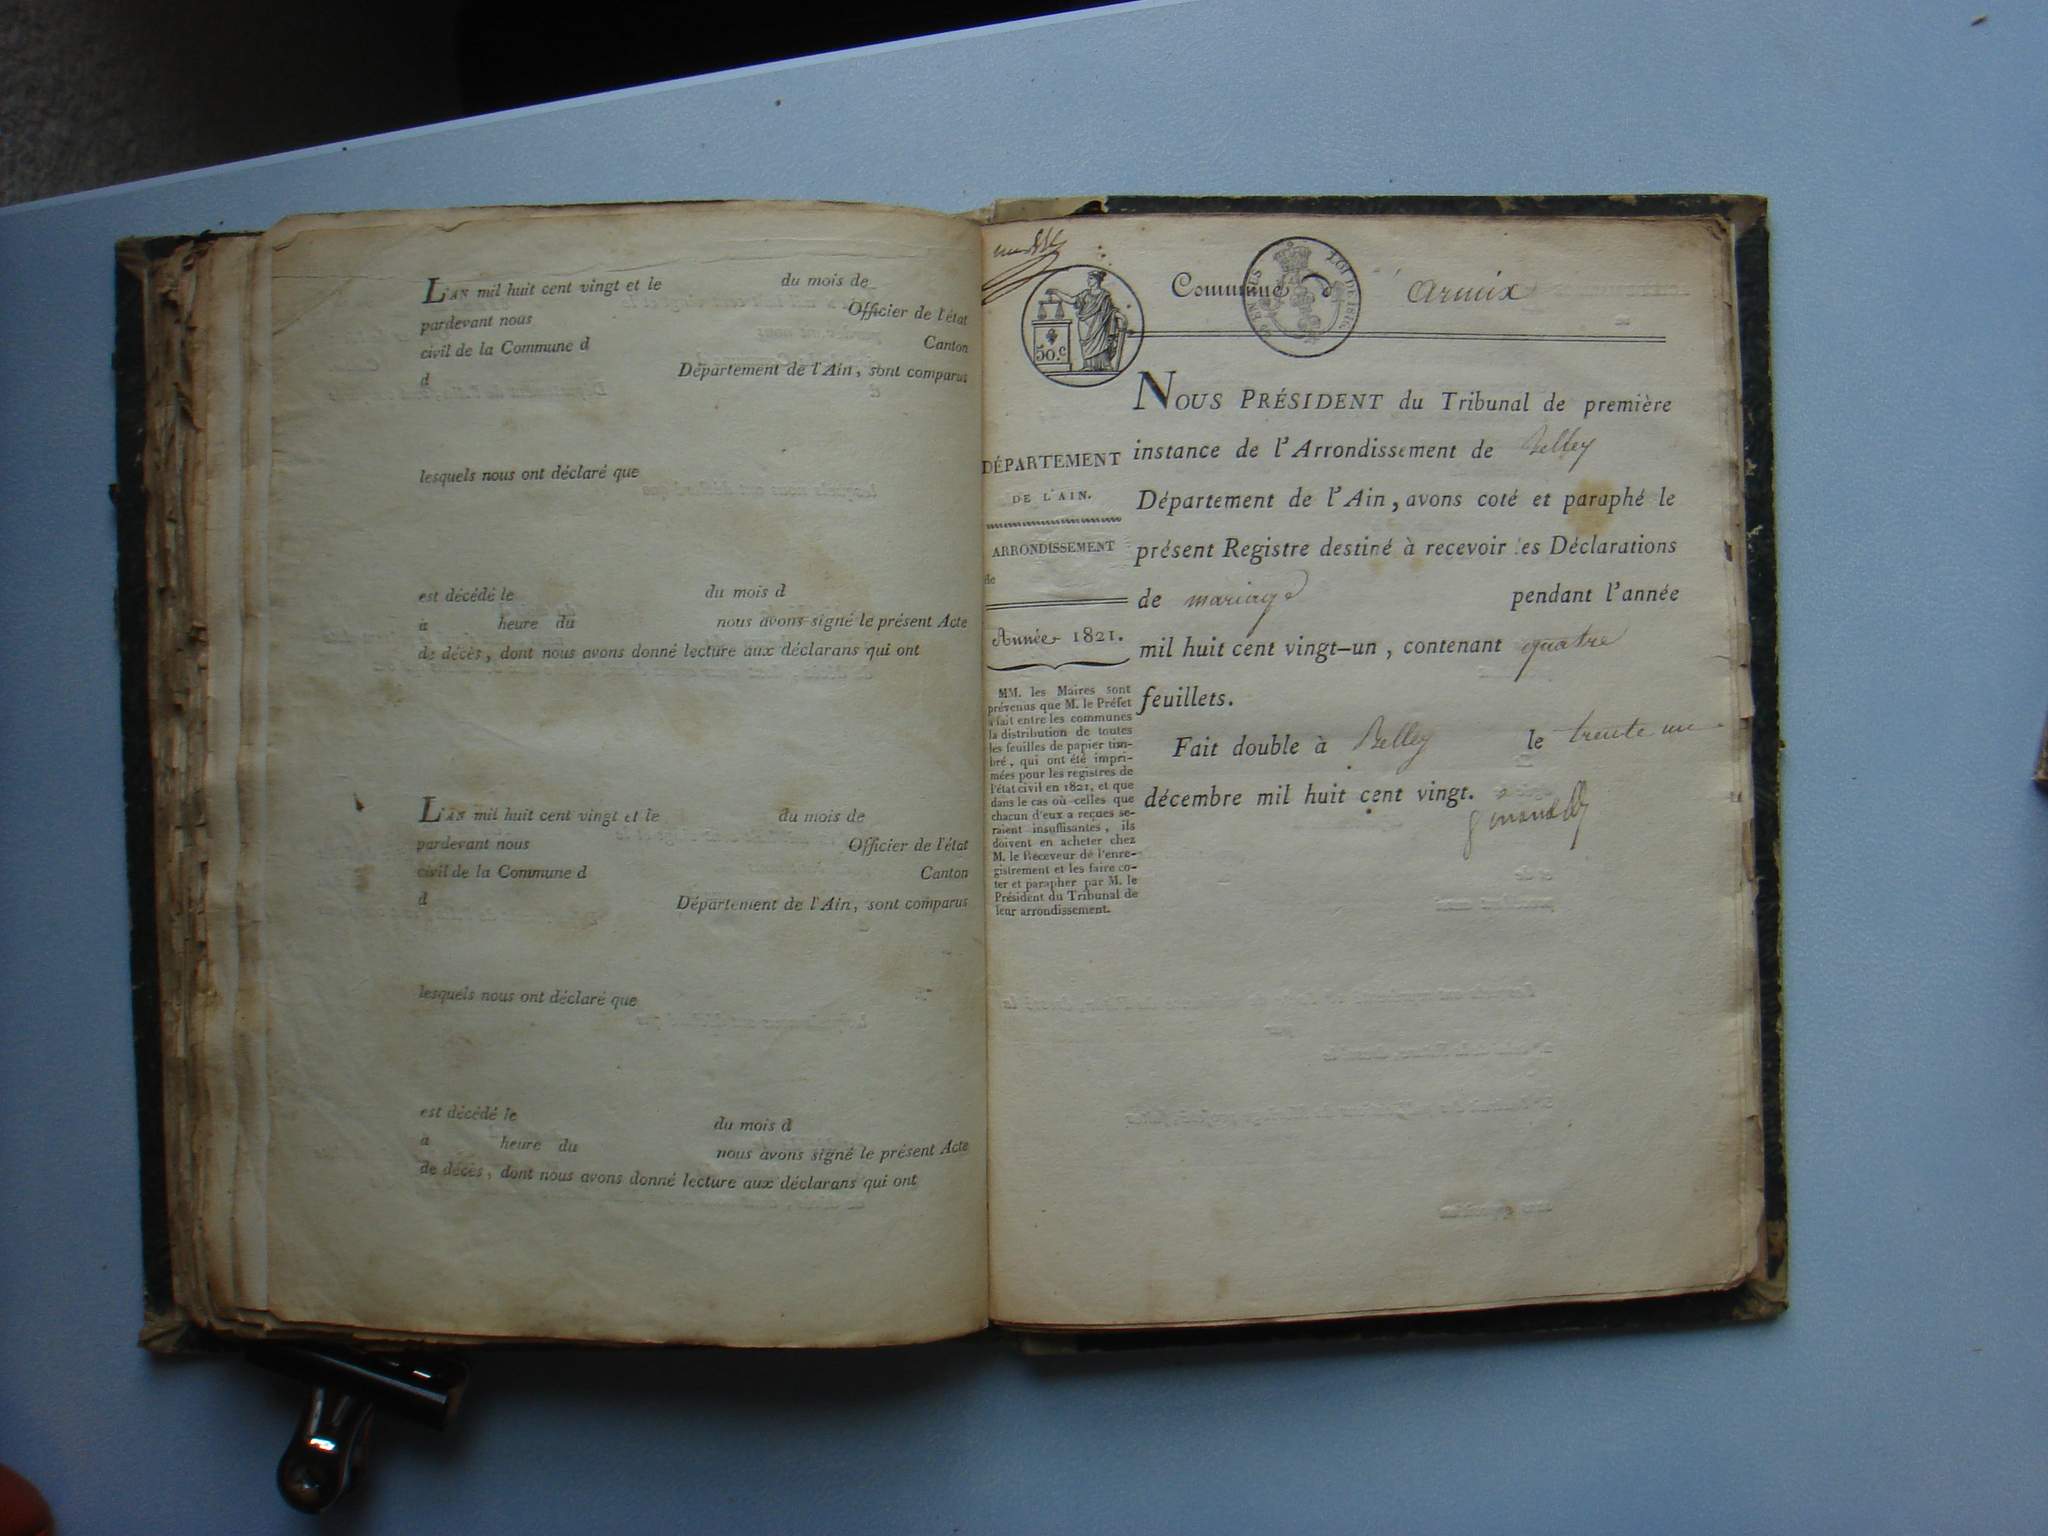 L'AN mil huit cent vingt et le du mois de
pardevant nous Officier de l'état
civil de la Commune d Canton
d Département de l'Ain, sont comparus
lesquels nous ont déclaré que
est décédé le du mois d
à heure du nous avons signé le présent Acte
de décès, dont nous avons donné lecture aux déclarans qui ont
L'AN mil huit cent vingt et le du mois de
pardevant nous Officier de l'état
civil de la Commune d Canton
d Département de l'Ain, sont comparus
lesquels nous ont déclaré que
est décédé le du mois d
à heure du nous avons signé le présent Acte
de décès, dont nous avons donné lecture aux déclarans qui ont
50.c
LOI DE 1816
Commune d'Armix
DÉPARTEMENT
DE L'AIN.
ARRONDISSEMENT
de
Année 1821.
MM. les Maires sont
prévenus que M. le Préfet
a fait entre les communes
la distribution de toutes
les feuilles de papier tim-
bré, qui ont été impri-
mées pour les registres de
l'état civil en 1821, et que
dans le cas où celles que
chacun d'eux a reçues se-
raient insuffisantes, ils
doivent en acheter chez
M. le Receveur de l'enre-
gistrement et les faire co-
ter et parapher par M. le
Président du Tribunal de
leur arrondissement.
NOUS PRÉSIDENT du Tribunal de première
instance de l'Arrondissement de Belley
Département de l'Ain, avons coté et paraphé le
présent Registre destiné à recevoir les Déclarations
de mariage pendant l'année
mil huit cent vingt-un, contenant quatre
feuillets.
Fait double à Belley le trente un
décembre mil huit cent vingt.